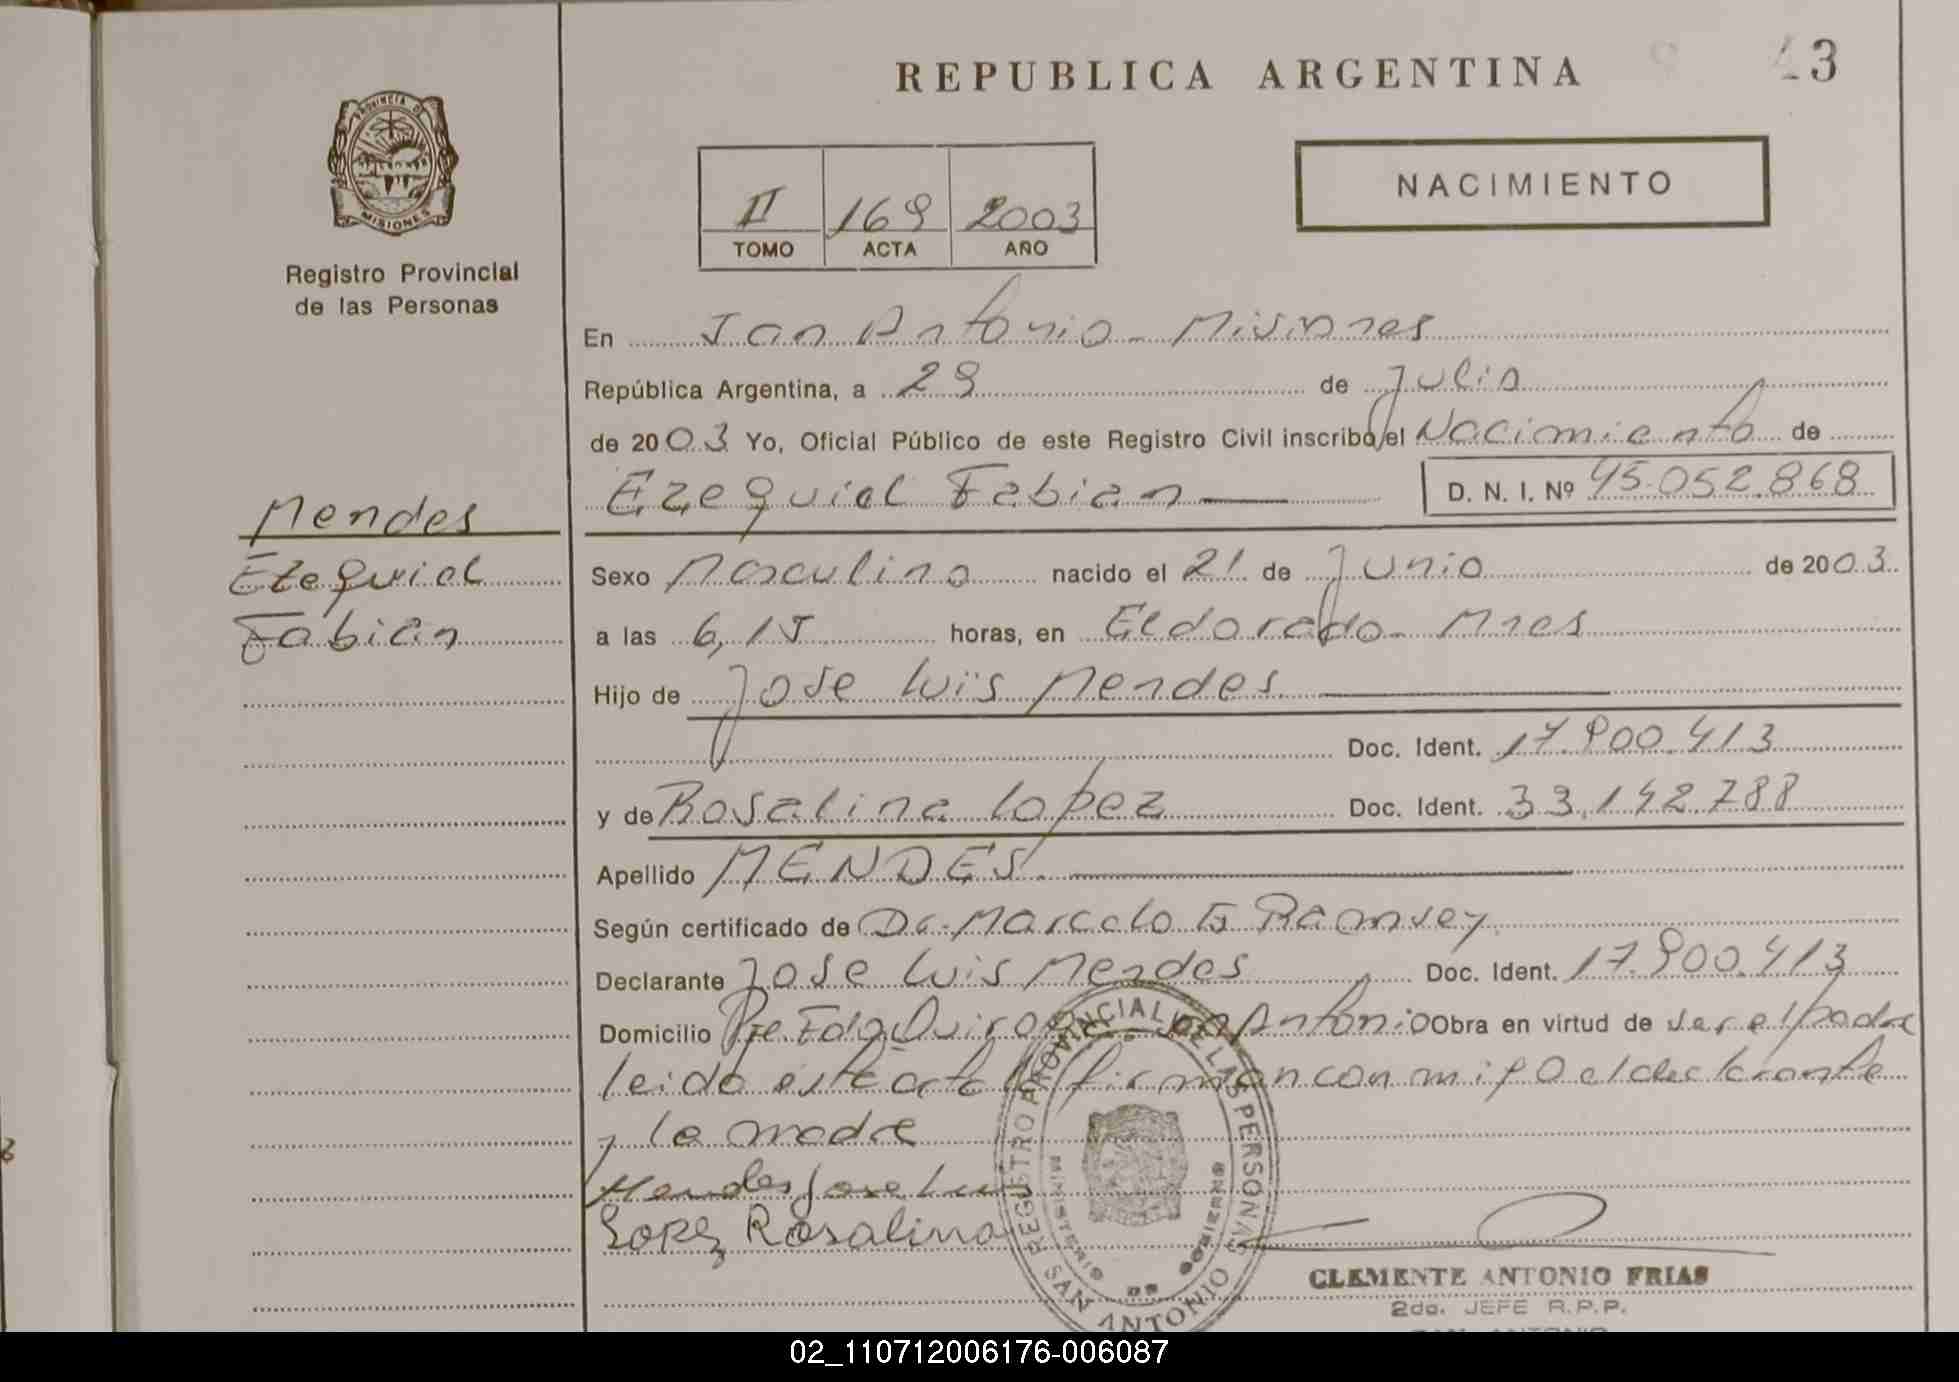 REPUBLICA ARGENTINA
43
PROVINCIA DE
MISIONES
Registro Provincial
de las Personas
II 169 2003
TOMO ACTA AÑO
NACIMIENTO
En San Antonio - Misiones
República Argentina, a 29 de Julio
de 2003 Yo, Oficial Público de este Registro Civil inscribo el Nacimiento de
Ezequiel Fabian D. N. I. Nº 45.052.868
Mendes
Ezequiel
Fabian
Sexo Masculino nacido el 21 de Junio de 2003
a las 6,15 horas, en Eldorado - Mnes
Hijo de Jose Luis Mendes
Doc. Ident. 17.900.413
y de Rosalina Lopez Doc. Ident. 33.142.788
Apellido MENDES.
Según certificado de Dr. Marcelo E Ramsey
Declarante Jose Luis Mendes Doc. Ident. 17.900.413
Domicilio Pje Fdo Quiroga - San Antonio Obra en virtud de ser el padre
leido este acta firman conmigo el declarante
y la madre
Mendes Jose Luis
Lopez Rosalina
REGISTRO PROVINCIAL DE LAS PERSONAS
MINISTERIO DE GOBIERNO
SAN ANTONIO
CLEMENTE ANTONIO FRIAS
2do. JEFE R.P.P.
SAN ANTONIO
02_110712006176-006087